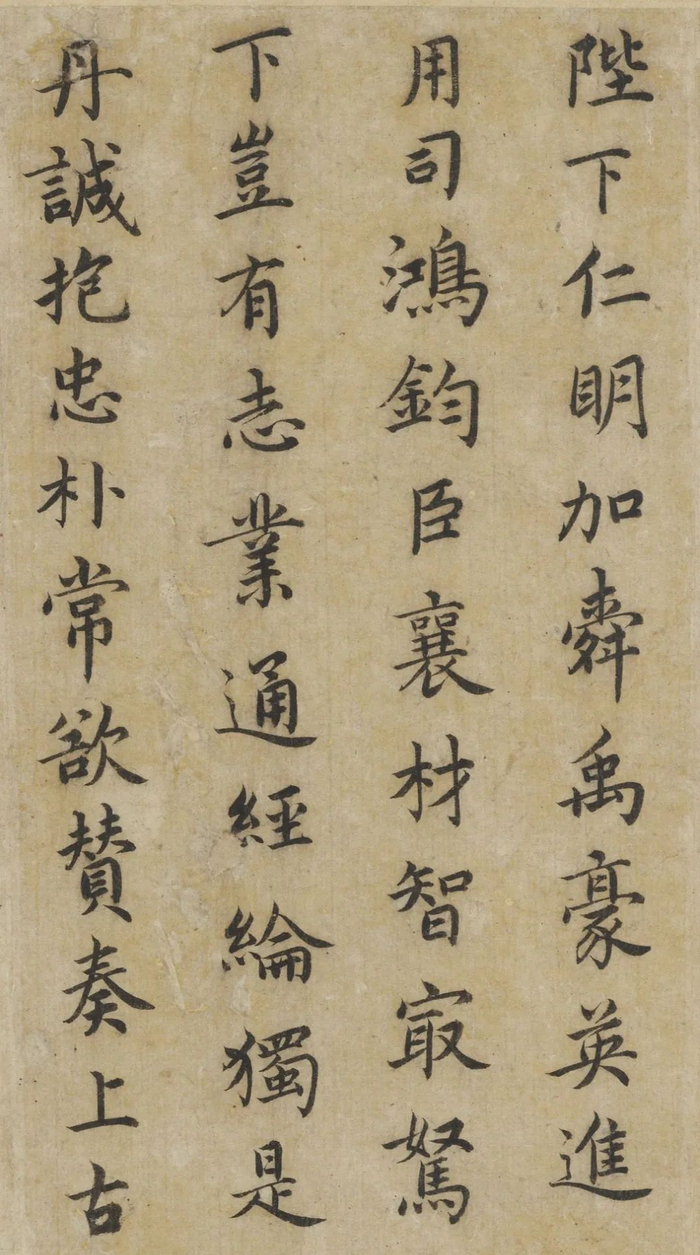 陛下仁明加舜禹豪英進
用司鴻鈞臣襄材智㝡駑
下豈有志業通經綸獨是
丹誠抱忠朴常欲贊奏上古